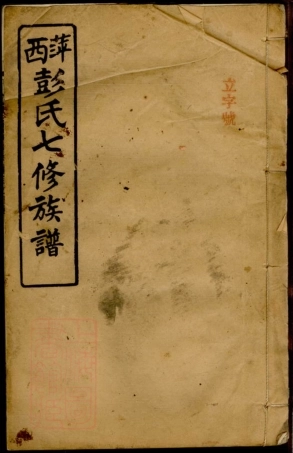 萍西彭氏七修族譜
立字號